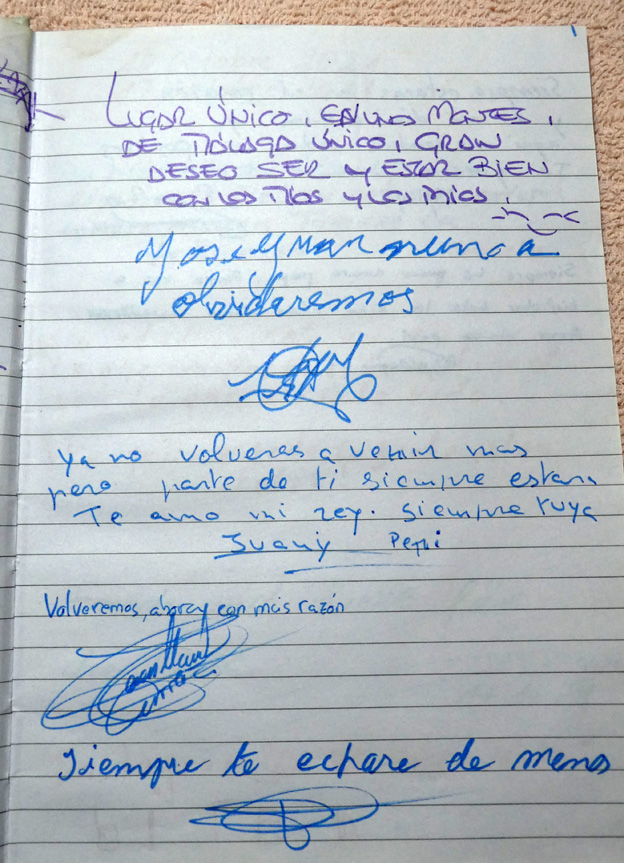 LUGAR ÚNICO, EN UNO MARTES,
DE MÁLAGA ÚNICO, GRAN
DESEO SER Y ESTAR BIEN
CON LOS TUOS Y LOS MIOS.
nunca
olvidaremos
Ya no volveras a venir mas
pero parte de ti siempre estara
Te amo mi rey. siempre tuya
Juani Pepi
Volveremos, ahora y con más razón
Siempre te echare de menos